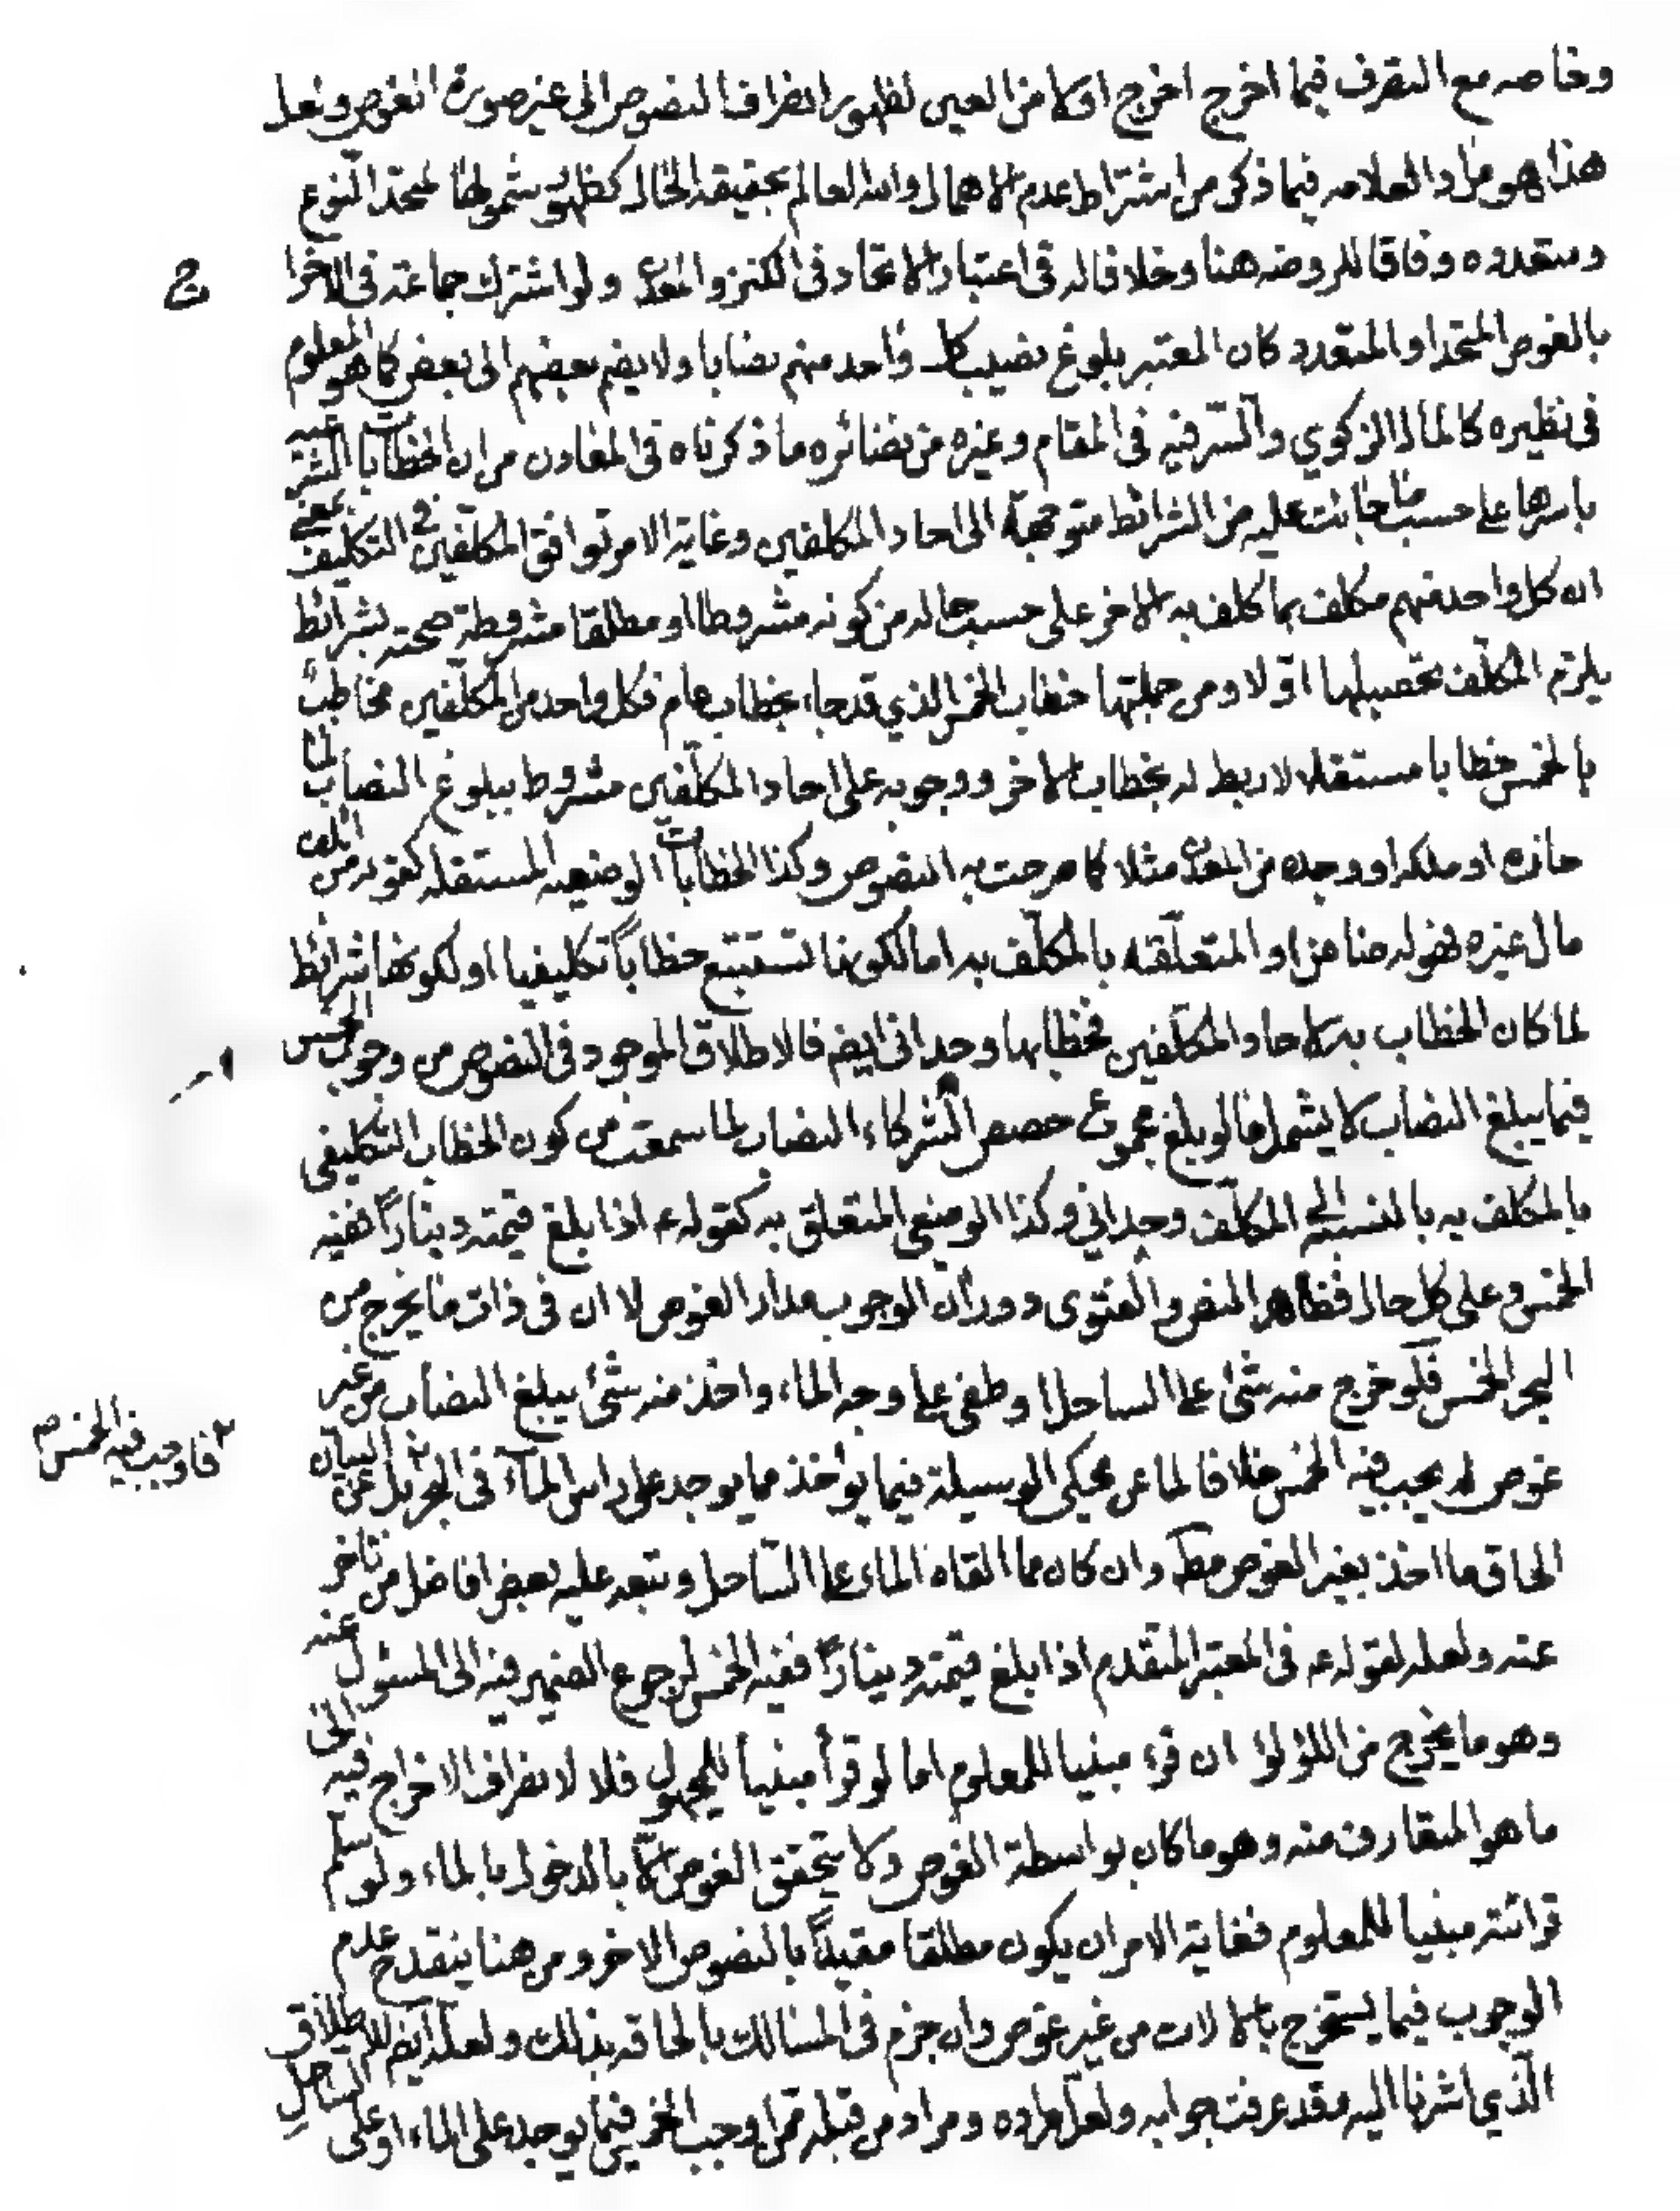 وخاصه مع التصرف فيما اخرج اخرج اولا من العين لظهور انصراف النصوص الى غير صورة الغوص ولعل
هذا هو مراد العلامه فيما ذكر من اشتراط عدم الاهمال والله العالم بحقيقه الحال كظهور شمولها لمتحد النوع
ومتعدده وفاقا للروضه هنا وخلافا له في اعتبار الاتحاد في الكنز والمعدن ولو اشترك جماعة في الاخراج
بالغوص المتحد او المتعدد كان المعتبر بلوغ نصيب كل واحد منهم نصابا ولا يضم بعضهم الى بعض كما هو المعلوم
في نظيره كالمال الزكوي والسر فيه في المقام وغيره من نضائره ما ذكرناه في المعادن من ان الخطابات الشرعيه
باسرها على حسب ما جائت عليه من الشرائط متوجهة الى احاد المكلفين وغاية الامر توافق المكلفين في التكليف بمعنى
ان كل واحد منهم مكلف بما كلف به الاخر على حسب حاله من كونه مشروطا او مطلقا مشروطة صحته بشرائط
يلزم المكلف تحصيلها اولا ومن جملتها خطاب الخمس الذي قد جاء بخطاب عام فكل واحد من المكلفين مخاطب
بالخمس خطابا مستقلا لا ربط له بخطاب الاخر ووجوبه على احاد المكلفين مشروط ببلوغ النصاب لما
حازه او ملكه او وجده من المعدن مثلا كما صرحت به النصوص وكذا الخطابات الوضعيه المستقله كقوله من اتلف
مال غيره فهو له ضامن او المتعلقه بالمكلف به اما لكونها تستتبع خطاباً تكليفيا او لكونها شرائط
لما كان الخطاب به لاحاد المكلفين فخطابها وحداني ايضم فالاطلاق الموجود في النصوص من وجوب الخمس
فيما يبلغ النصاب لا يشمل ما لو بلغ مجموع حصص الشركاء النصاب لما سمعت من كون الخطاب التكليفي
بالمكلف به بالنسبة الى المكلف وحداني وكذا الوضعي المتعلق به كقوله ع اذا بلغ قيمته ديناراً ففيه
الخمس وعلى كل حال فظاهر النص والفتوى دوران الوجوب مدار الغوص لا ان في ذات ما يخرج من
البحر الخمس فلو خرج منه شئ على الساحل او طفى على وجه الماء واخذ منه شئ يبلغ النصاب من غير
غوص لم يجب فيه الخمس خلافا لما عن محكي الوسيلة فيما يؤخذ مما يوجد على راس الماء في البحر بل عن البيان
٢ فاوجب فيه الخمس م
الحاق ما اخذ بغير الغوص مط وان كان مما القاه الماء على الساحل وتبعه عليه بعض افاضل من تاخر
عنه ولعله لقوله ع في المعتبر المتقدم اذا بلغ قيمته ديناراً ففيه الخمس لرجوع الضمير فيه الى المسئول عنه
وهو ما يخرج من اللؤلؤ ان قرء مبنيا للمعلوم اما لو قرأ مبنياً للمجهول فلا لانصراف الاخراج فيه الى
ما هو المتعارف منه وهو ما كان بواسطة الغوص ولا يتحقق الغوص الا بالدخول بالماء ولو سلم
قرائته مبنيا للمعلوم فغاية الامر ان يكون مطلقا مقيداً بالنصوص الاخر ومن هنا ينقدح عدم
الوجوب فيما يستخرج بالالات من غير غوص وان جزم في المسالك بالحاقه بذلك ولعله ايضم للاطلاق
الذي اشرنا اليه وقد عرفت جوابه ولعل مراده ومراد من قبله ممن اوجب الخمس فيما يوجد على الماء او على الساحل